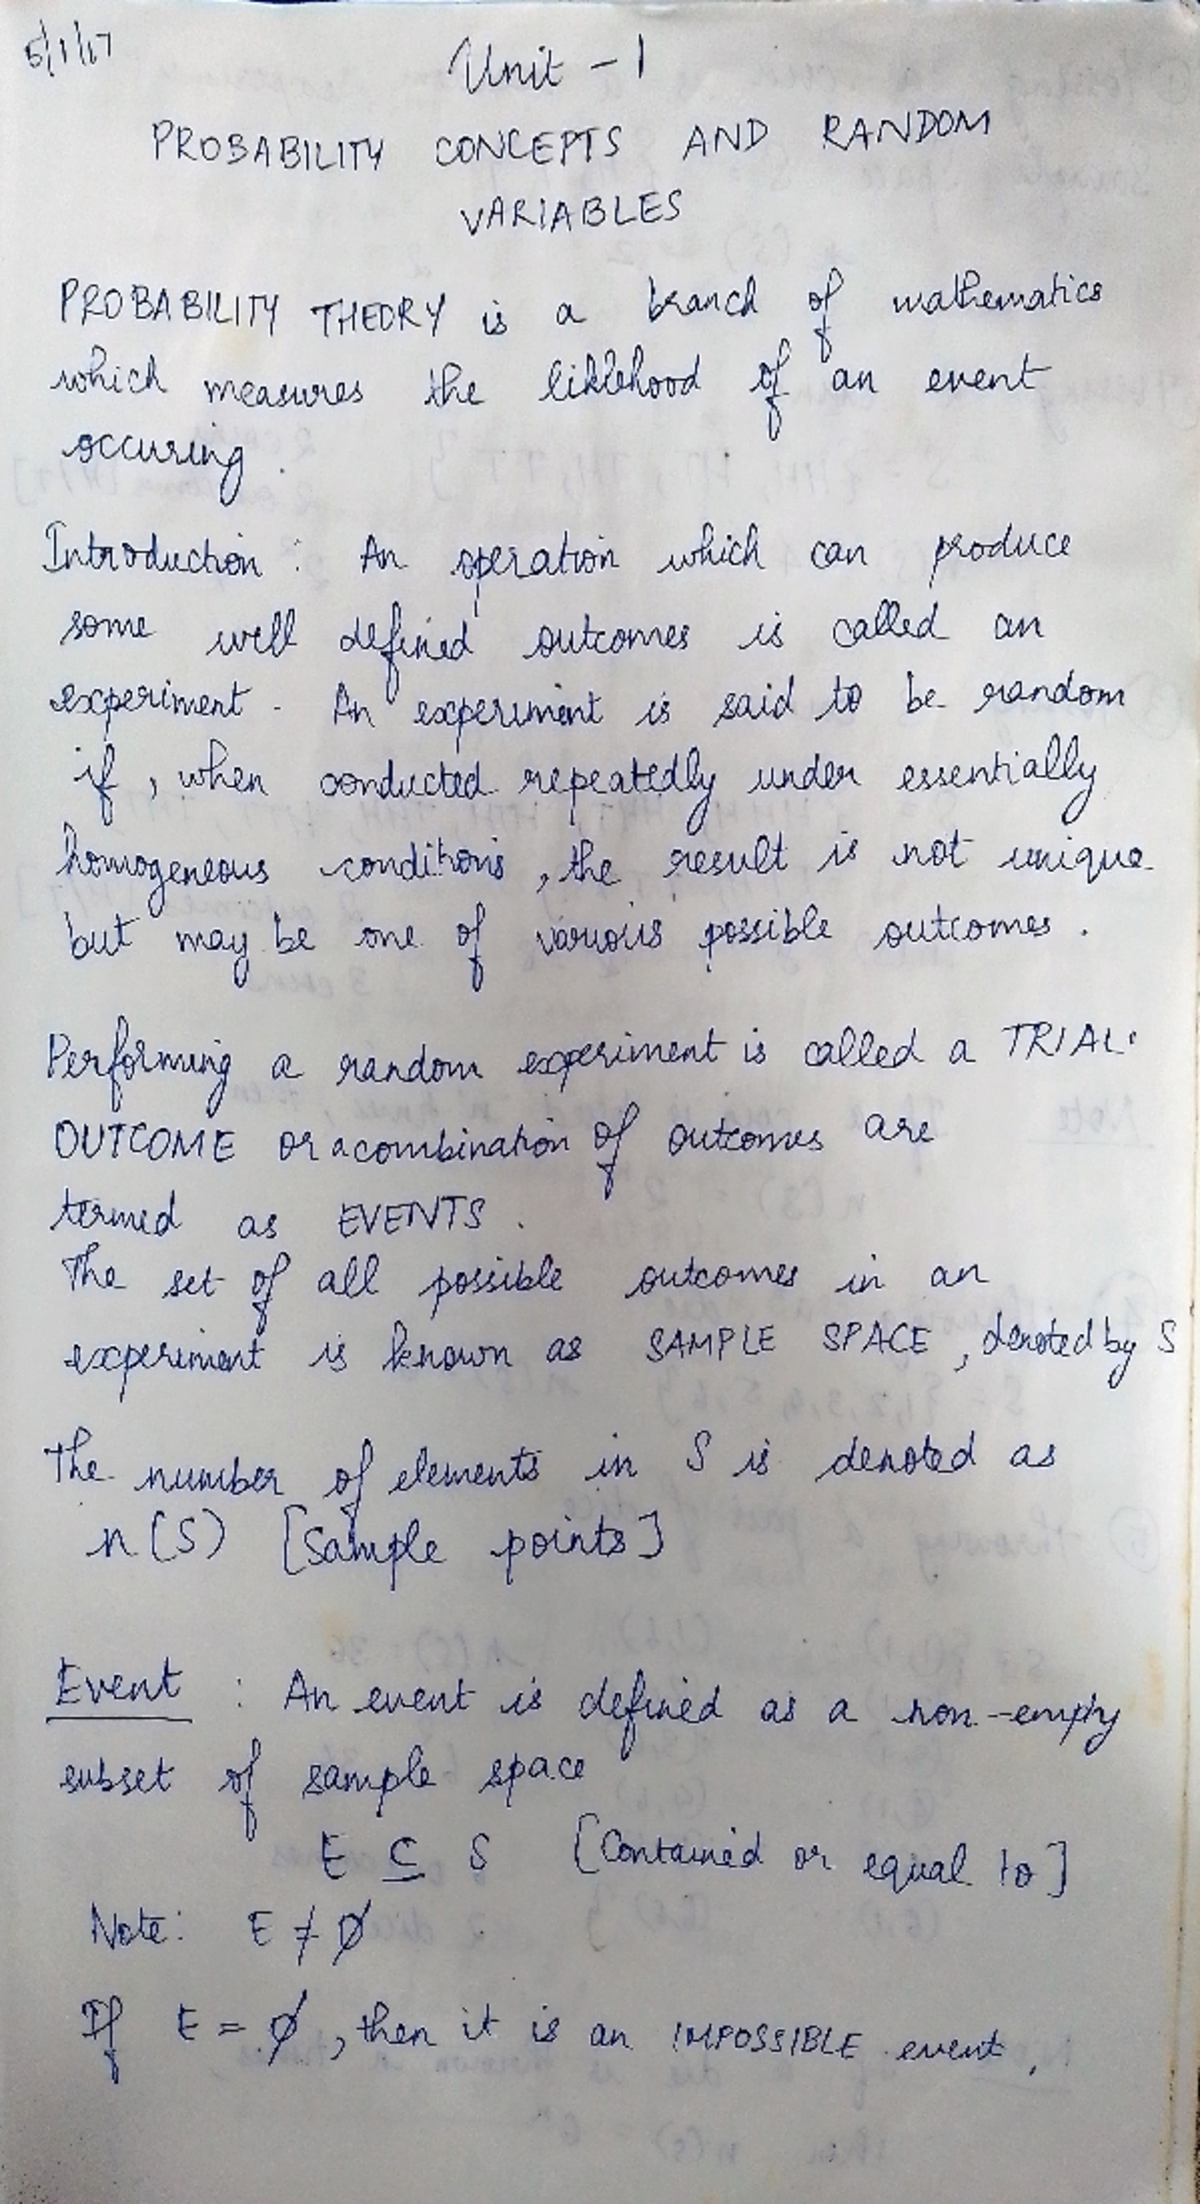 5/1/17
Unit - 1
PROBABILITY CONCEPTS AND RANDOM
VARIABLES
PROBABILITY THEORY is a branch of mathematics
which measures the liklehood of an event
occuring.
Introduction : An operation which can produce
some well defined outcomes is called an
experiment. An experiment is said to be random
if, when conducted repeatedly under essentially
homogeneous conditions, the result is not unique
but may be one of various possible outcomes.
Performing a random experiment is called a TRIAL.
OUTCOME or a combination of outcomes are
termed as EVENTS.
The set of all possible outcomes in an
experiment is known as SAMPLE SPACE, denoted by S
The number of elements in S is denoted as
n(S) [Sample points]
Event : An event is defined as a non-empty
subset of sample space
E ⊆ S [Contained or equal to]
Note: E ≠ ∅
If E = ∅, then it is an IMPOSSIBLE event.